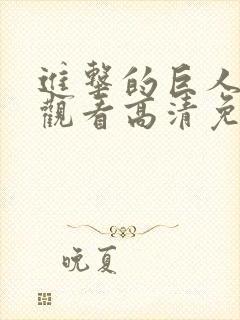 進擊的巨人
觀看高清免
晚夏